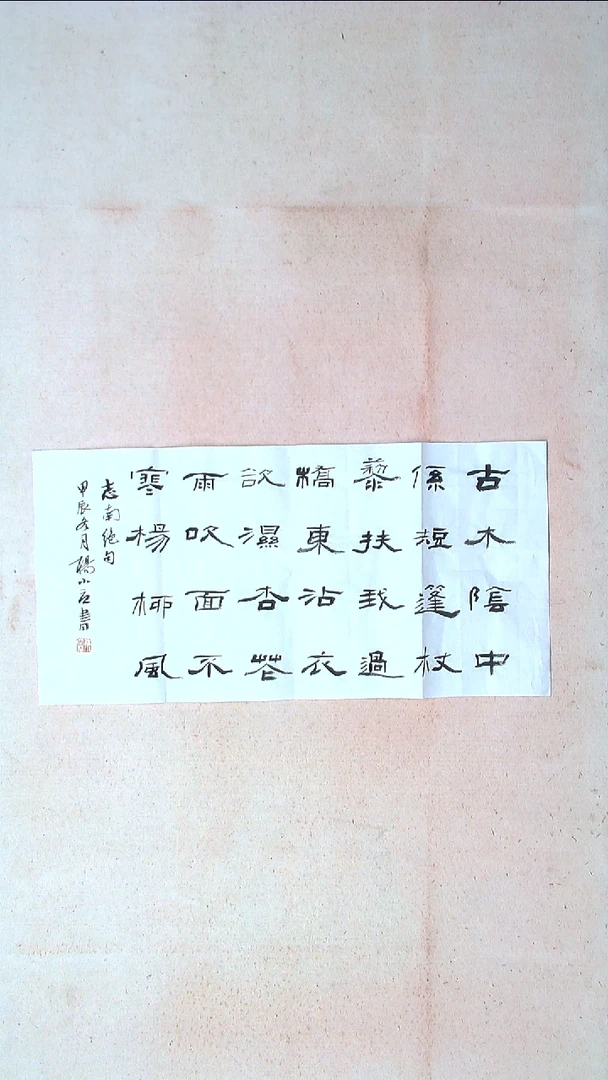 古木陰中
係短篷杖
藜扶我過
橋東沾衣
欲濕杏花
雨吹面不
寒楊柳風
志南絶句
甲辰冬月楊小石書